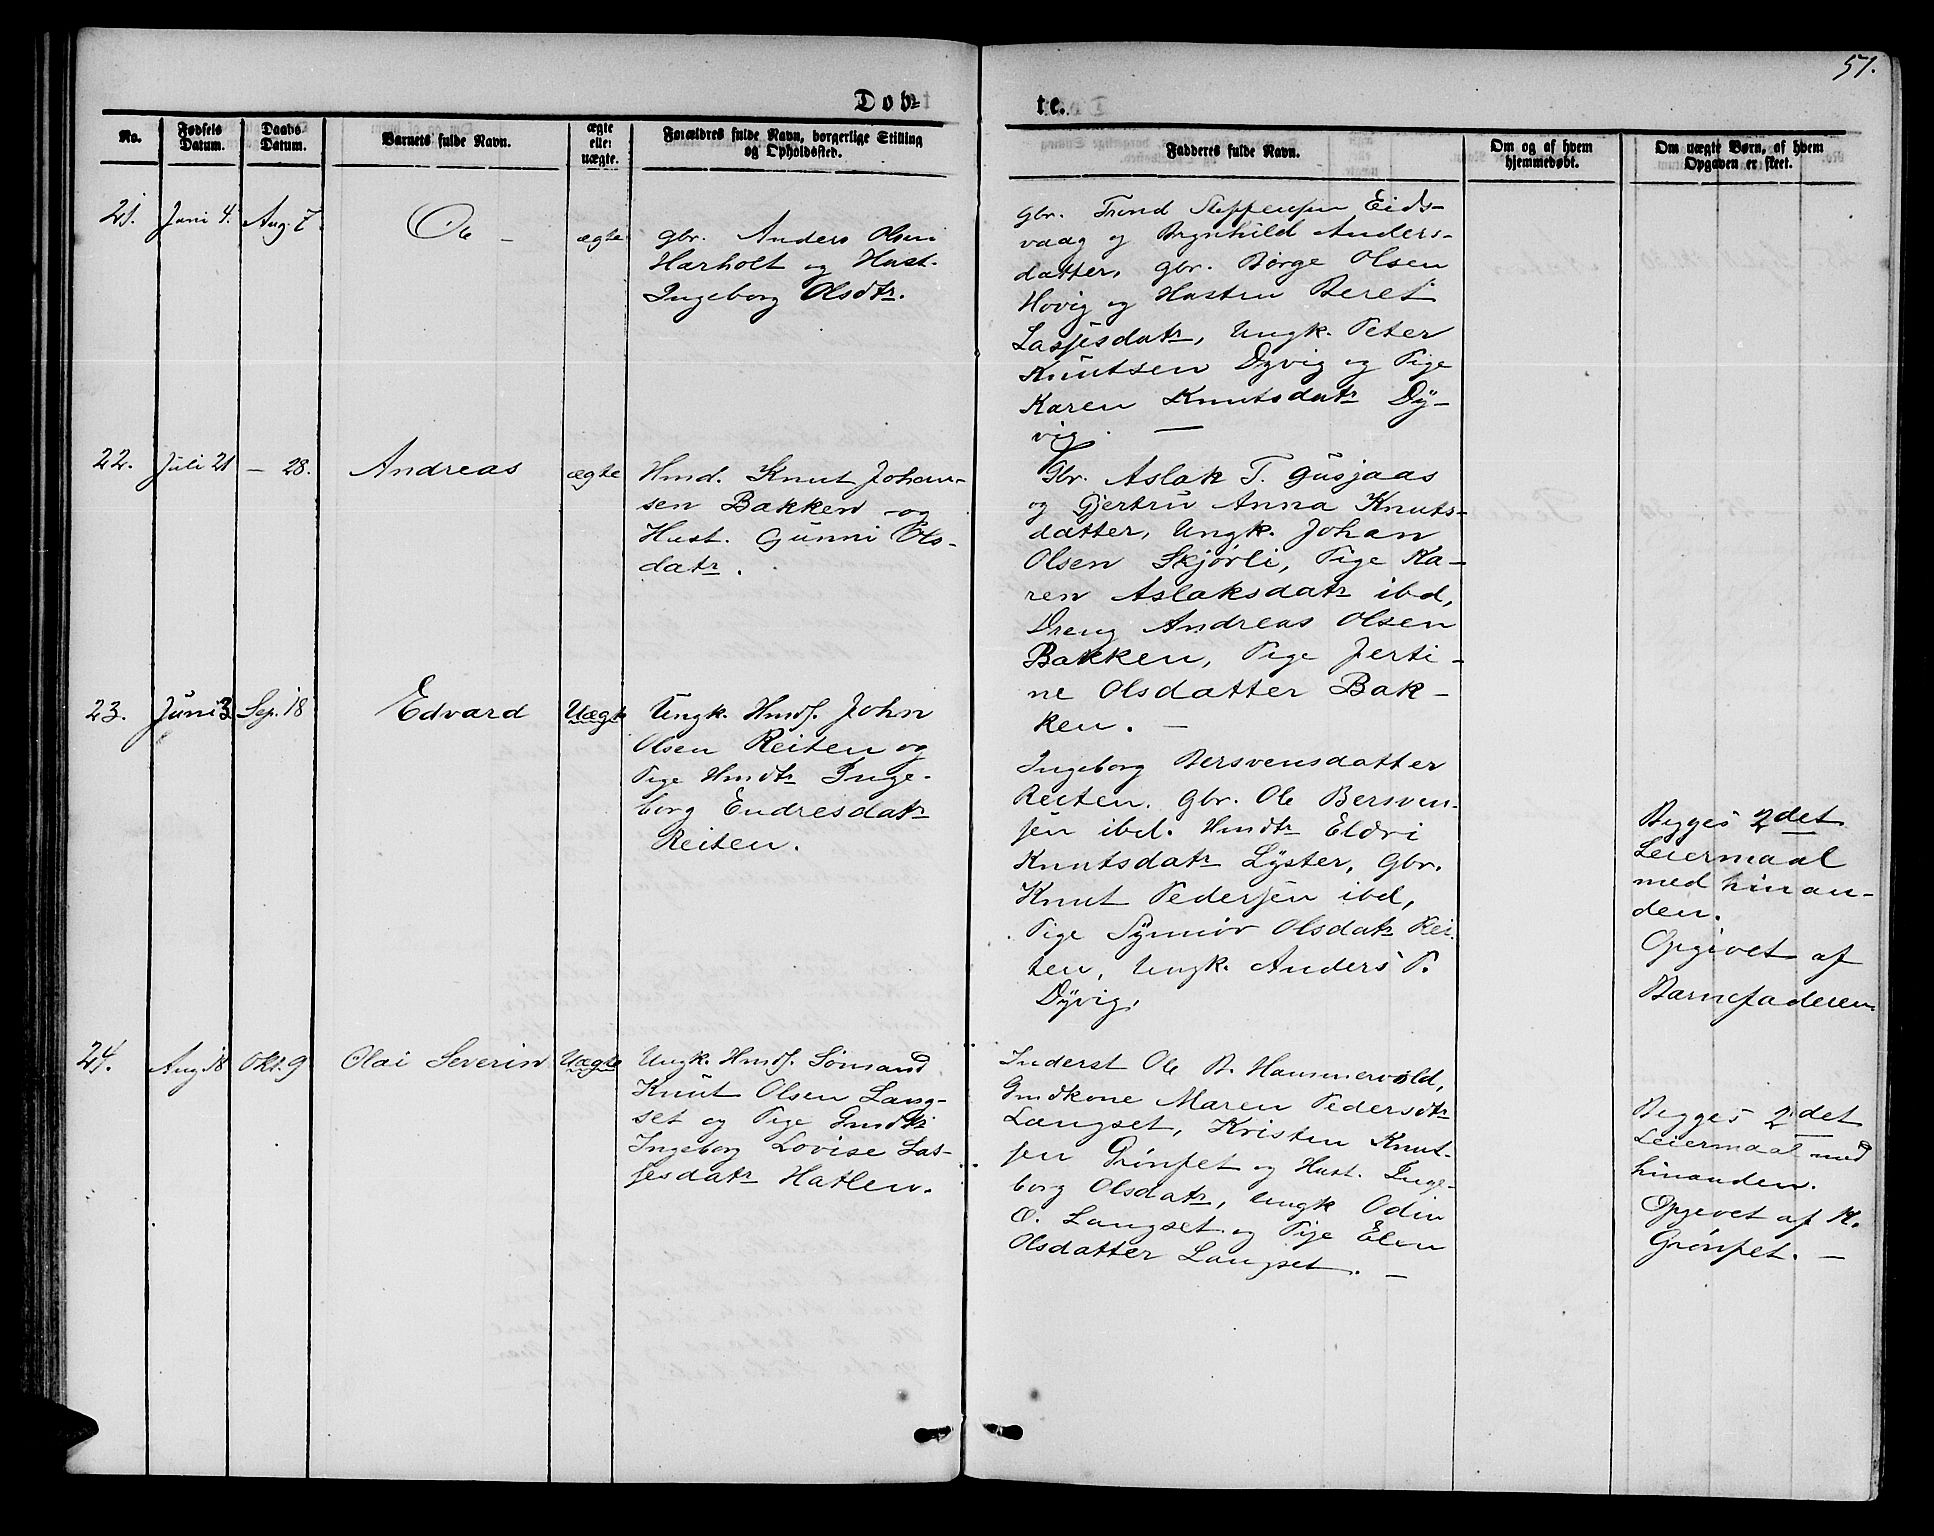 57.
Døb-
te.
No.
Fødsels
Datum.
Daabs
Datum.
Barnets fulde Navn.
ægte
eller
uægte.
Forældres fulde Navn, borgerlige Stilling
og Opholdssted.
Fadderes fulde Navn.
Om og af hvem
hjemmedøbt.
Om uægte Børn, af hvem
Opgaven er skeet.
21.
Juni 4.
Aug. 7.
Ole
ægte
gbr. Anders Olsen
Harholt og Hust.
Ingeborg Olsdtr.
gbr. Trond Steffensen Eids-
vaag og Brynhild Anders-
datter, gbr. Børge Olsen
Hovig og Hustru Beret
Lassesdatr, Ungk. Peter
Knutsen Dyvig og Pige
Karen Knutsdatr Dy-
vig. —
22.
Juli 21
— 28.
Andreas
ægte
Hmd. Knut Johan-
sen Bakken og
Hust. Gunni Ols-
datr.
Gbr. Aslak T. Gusjaas
og Gjertru Anna Knuts-
datter, Ungk. Johan
Olsen Skjørli, Pige Ka-
ren Aslaksdatr ibd,
Dreng Andreas Olsen
Bakken, Pige Jerti-
ne Olsdatter Bak-
ken. —
23.
Juni 3
Sep. 18
Edvard
Uægte
Ungk. Hmds. John
Olsen Reiten og
Pige Hmdtr Inge-
borg Endresdatr
Reiten.
Ingeborg Bersvensdatter
Reiten. Gbr. Ole Bersven-
sen ibd. Hmdtr Eldri
Knutsdatr Lyster, Gbr.
Knut Pedersen ibd,
Pige Synnøv Olsdatr Rei-
ten, Ungk. Anders P.
Dyvig.
Begges 2det
Leiermaal
med hinan-
den.
Opgivet af
Barnefaderen
24.
Aug. 18
Okt. 9
Olai Severin
Uægte
Ungk. Hmds. Sømand
Knut Olsen Lang-
set og Pige Gmdtr
Ingeborg Lovise Las-
sesdatr Hatlen.
Inderst Ole B. Hammervold,
Gmdkone Maren Pedersdtr
Langset, Kristen Knut-
sen Grønset og Hust. Inge-
borg Olsdatr, Ungk Odin
O. Langset og Pige Elen
Olsdatter Langset. —
Begges 2det
Leiermaal med
hinanden.
Opgivet af K.
Grønset. —